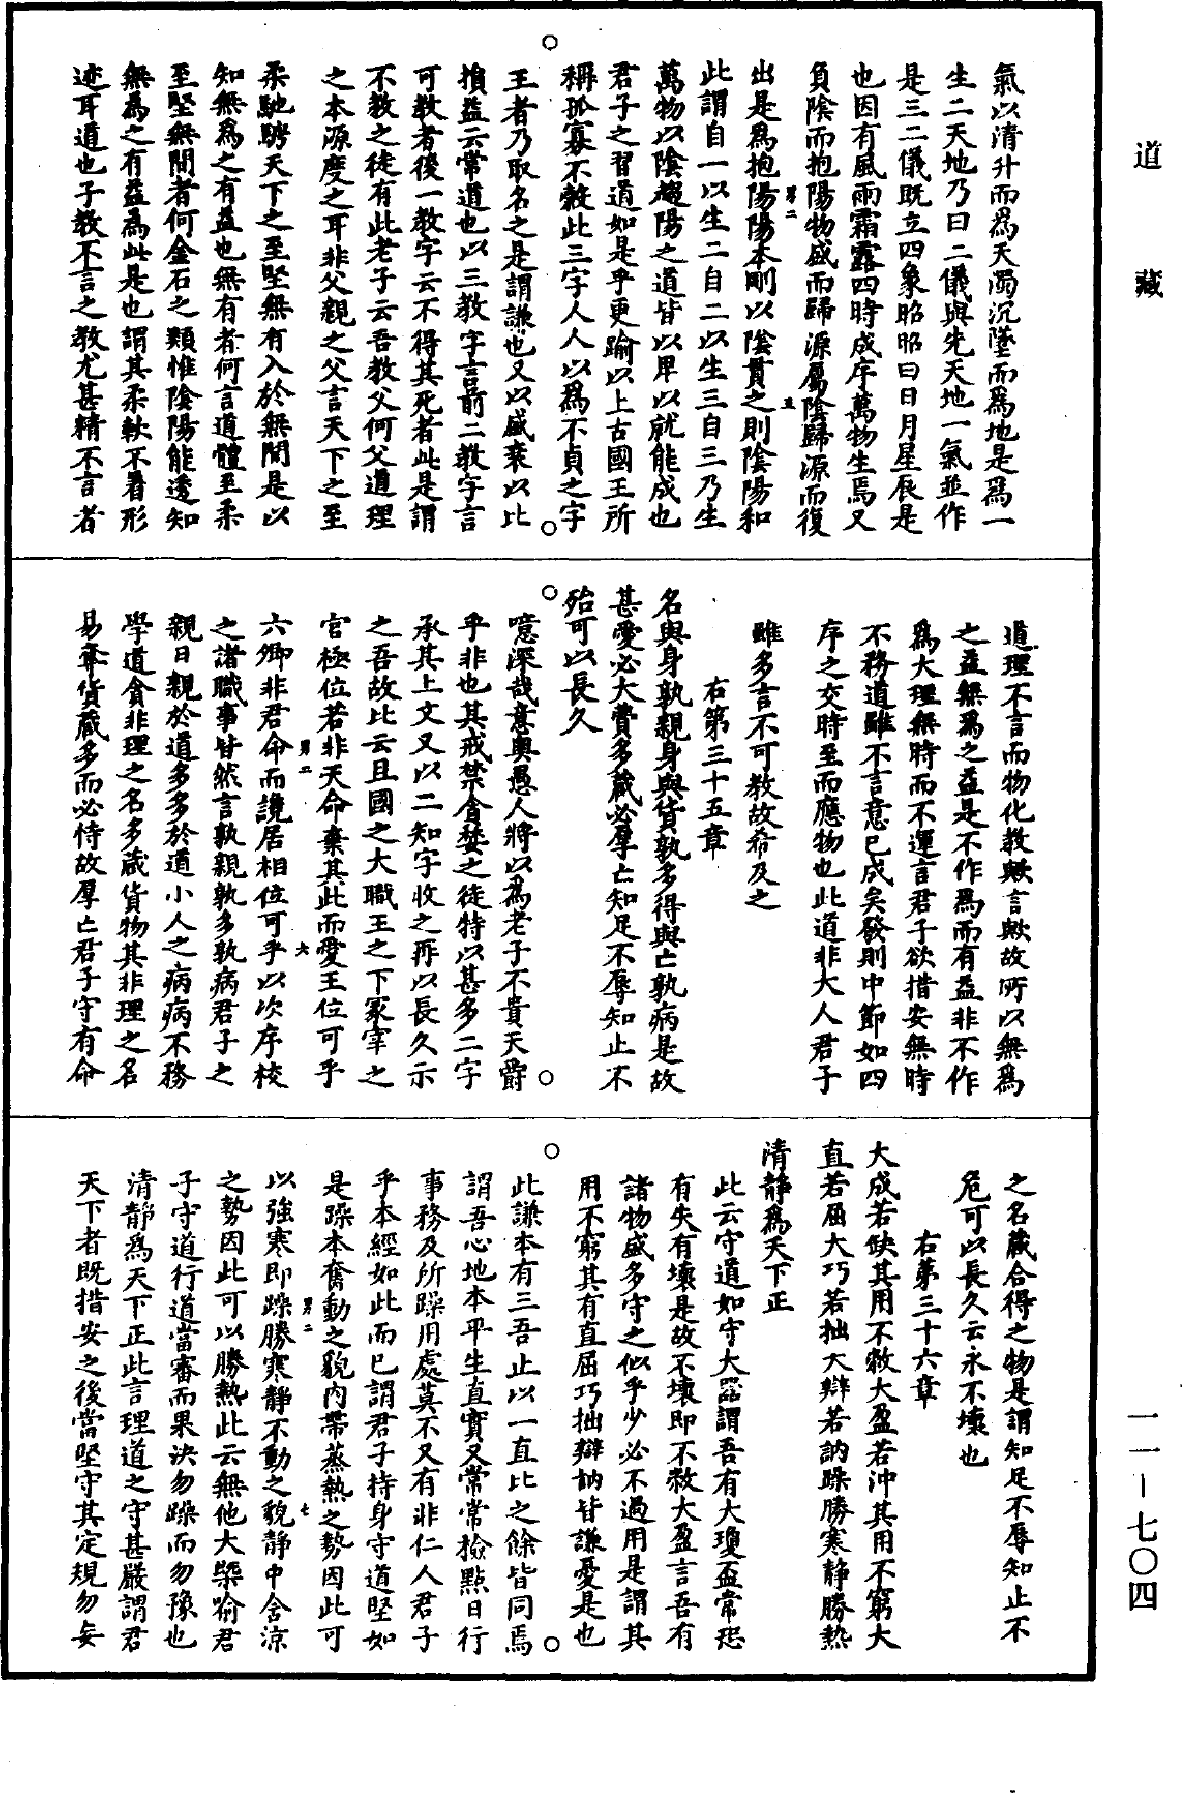 道藏
一一—七〇四
氣以清升而爲天濁沉墜而爲地是爲一
生二天地乃曰二儀與先天地一氣並作
是三二儀既立四象昭昭曰日月星辰是
也因有風雨霜露四時成序萬物生焉又
負陰而抱陽物盛而歸源屬陰歸源而復
出是爲抱陽陽本剛以陰貫之則陰陽和
此謂自一以生二自二以生三自三乃生
萬物以陰趨陽之道皆以卑以就能成也
君子之習道如是乎更踰以上古國王所
稱孤寡不穀此三字人人以爲不貞之字
王者乃取名之是謂謙也又以盛衰以比
損益云常道也以三教字言前二教字言
可教者後一教字云不得其死者此是謂
不教之徒有此老子云吾教父何父道理
之本源度之耳非父親之父言天下之至
柔馳騁天下之至堅無有入於無間是以
知無爲之有益也無有者何言道體至柔
至堅無間者何金石之類惟陰陽能透知
無爲之有益爲此是也謂其柔軟不着形
迹耳道也子教不言之教尤甚精不言者
道理不言而物化教歟言歟故所以無爲
之益無爲之益是不作爲而有益非不作
爲大理無時而不運言君子欲措安無時
不務道雖不言意已成矣發則中節如四
序之交時至而應物也此道非大人君子
雖多言不可教故希及之
右第三十五章
名與身孰親身與貨孰多得與亡孰病是故
甚愛必大費多藏必厚亡知足不辱知止不
殆可以長久
噫深哉意與愚人將以爲老子不貴天爵
乎非也其戒禁貪婪之徒特以甚多二字
承其上文又以二知字收之再以長久示
之吾故比云且國之大職王之下冢宰之
官極位若非天命棄其此而愛王位可乎
六卿非君命而讒居相位可乎以次序校
之諸職事皆然言孰親孰多孰病君子之
親日親於道多多於道小人之病病不務
學道貪非理之名多藏貨物其非理之名
易奪貨藏多而必恃故厚亡君子守有命
之名藏合得之物是謂知足不辱知止不
危可以長久云永不壞也
右第三十六章
大成若缺其用不敝大盈若沖其用不窮大
直若屈大巧若拙大辯若訥躁勝寒靜勝熱
清靜爲天下正
此云守道如守大器謂吾有大瓊盃常恐
有失有壞是故不壞即不敝大盈言吾有
諸物盛多守之似乎少必不過用是謂其
用不窮其有直屈巧拙辯訥皆謙憂是也
此謙本有三吾止以一直比之餘皆同焉
謂吾心地本平生直實又常常檢點日行
事務及所躁用處莫不又有非仁人君子
乎本經如此而已謂君子持身守道堅如
是躁本奮動之貌內帶蒸熱之勢因此可
以強寒即躁勝寒靜不動之貌靜中含涼
之勢因此可以勝熱此云無他大槩喻君
子守道行道當審而果決勿躁而勿豫也
清靜爲天下正此言理道之守甚嚴謂君
天下者既措安之後當堅守其定規勿妄